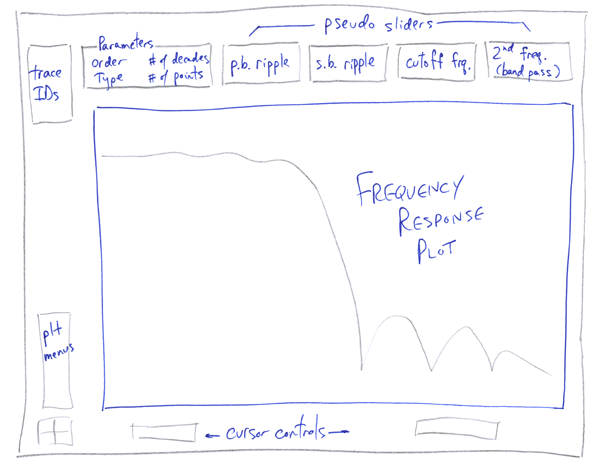 pseudo sliders
Parameters
Order # of decades
Type # of points
p.b. ripple
s.b. ripple
cutoff frq.
2nd freq.
(band pass)
trace
IDs
FREQUENCY
RESPONSE
PLOT
plt
menus
cursor controls